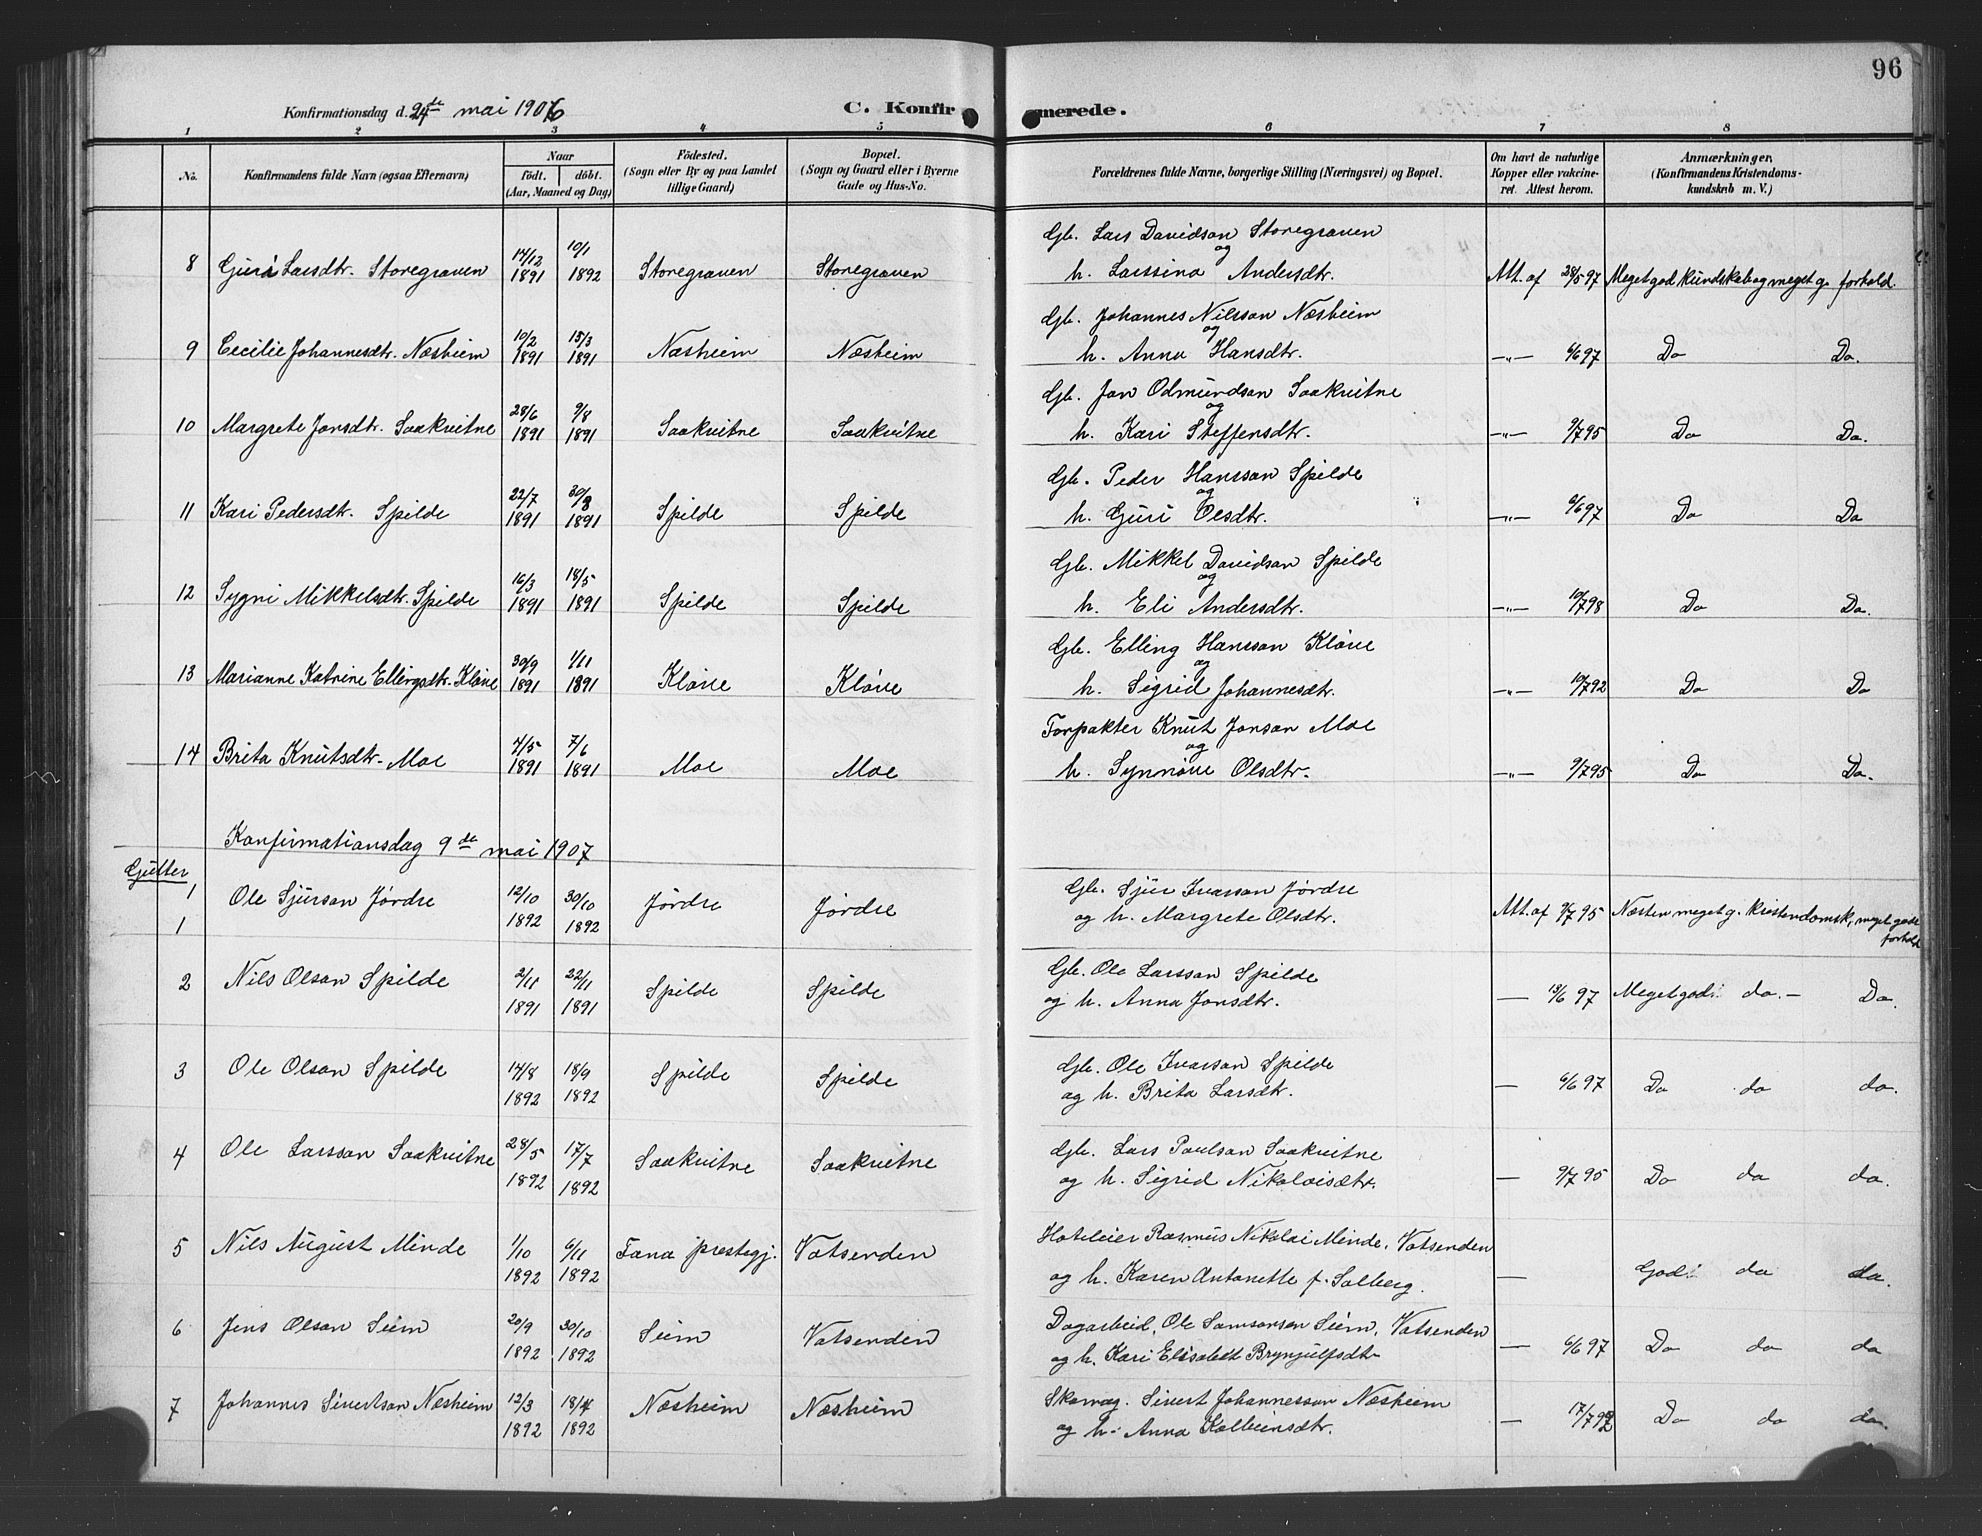 96
Konfirmationsdag d. 24de mai 1906 C. Konfirmerede.
1 2 3 4 5 6 7 8
No. Konfirmandens fulde Navn (ogsaa Efternavn) Naar födt. döbt. (Aar, Maaned og Dag) Födested. (Sogn eller By og paa Landet tillige Gaard) Bopæl. (Sogn og Gaard eller i Byerne Gade og Hus-No. Forældrenes fulde Navne, borgerlige Stilling (Næringsvei) og Bopæl. Om havt de naturlige Kopper eller vakcineret. Attest herom. Anmærkninger, (Konfirmandens Kristendomskundskab m. V.)
8 Guri Larsdtr. Storegraven 14/12 1891 10/1 1892 Storegraven Storegraven Gb. Lars Davidson Storegraven og
h. Larssina Andersdtr. Att. af 28/5 97 Meget god kundskab og meget g. forhold.
9 Cecilie Johannesdtr. Næsheim 10/2 1891 15/3 1891 Næsheim Næsheim Gb. Johannes Nilsson Næsheim og
h. Anna Hansdtr. —"— 6/6 97 Do Do.
10 Margrete Jonsdtr. Saakvitne 28/6 1891 9/8 1891 Saakvitne Saakvitne Gb. Jon Odmundson Saakvitne og
h. Kari Steffensdtr. —"— 9/7 95 Do Do.
11 Kari Pedersdtr. Spilde 22/7 1891 30/8 1891 Spilde Spilde Gb. Peder Hansson Spilde og
h. Guri Olsdtr. —"— 6/6 97 Do Do
12 Sygni Mikkelsdtr. Spilde 16/3 1891 18/5 1891 Spilde Spilde Gb. Mikkel Davidson Spilde og
h. Eli Andersdtr. —"— 10/7 98 Do Do.
13 Marianne Katrine Ellingsdtr. Kløve 30/9 1891 1/11 1891 Kløve Kløve Gb. Elling Hansson Kløve og
h. Sigrid Johannesdtr. —"— 10/7 92 Do Do
14 Brita Knutsdtr. Moe 4/5 1891 7/6 1891 Moe Moe Forpakter Knut Jonson Moe og
h. Synnøve Olsdtr. —"— 9/7 95 Do Do.
Konfirmationsdag 9de mai 1907
Gutter
1 1 Ole Sjurson Jørdre 12/10 1892 30/10 1892 Jørdre Jørdre Gb. Sjur Ivarson Jørdre
og h. Margrete Olsdtr. Att. af 9/7 95 Næsten meget g. kristendomsk, meget godt forhold
2 Nils Olson Spilde 2/11 1891 22/11 1891 Spilde Spilde Gb. Ole Larsson Spilde
og h. Anna Jonsdtr. — 13/6 97 Meget god. do.— Do.
3 Ole Olson Spilde 14/8 1892 18/9 1892 Spilde Spilde Gb. Ole Ivarson Spilde
og h. Brita Larsdtr. — 6/6 97 Do do do.
4 Ole Larsson Saakvitne 28/5 1892 17/7 1892 Saakvitne Saakvitne Gb. Lars Paulson Saakvitne
og h. Sigrid Nikolaisdtr. — 9/7 95 Do do do.
5 Nils August Minde 1/10 1892 6/11 1892 Fana prestegj. Vatsenden Hoteleier Rasmus Nikolai Minde, Vatsenden
og h. Karen Antonette f. Solberg. — God. do da.
6 Jens Olson Seim 20/9 1892 30/10 1892 Seim Vatsenden Dagarbeid. Ole Samsonson Seim, Vatsenden
og h. Kari Elisabet Brynjulfsdtr — 6/6 97 Do do do
7 Johannes Sivertson Næsheim 12/3 1892 18/4 1892 Næsheim Næsheim Skomag. Sivert Johannesson Næsheim
og h. Anna Kolbeinsdtr. — 17/7 92 Do do do.